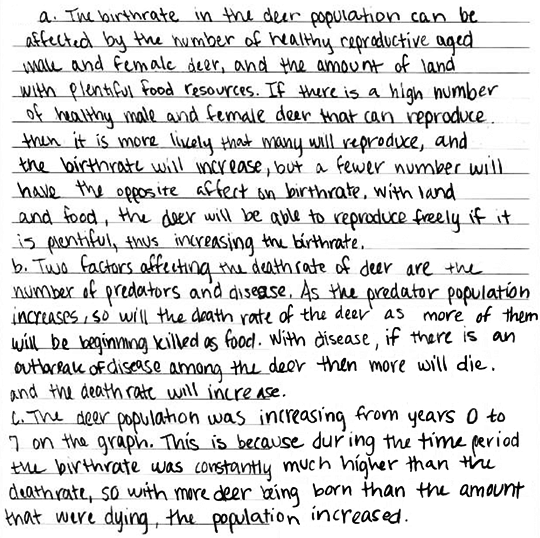 a. The birthrate in the deer population can be
affected by the number of healthy reproductive aged
male and female deer, and the amount of land
with plentiful food resources. If there is a high number
of healthy male and female deer that can reproduce.
then it is more likely that many will reproduce, and
the birthrate will increase, but a fewer number will
have the opposite affect on birthrate. With land
and food, the deer will be able to reproduce freely if it
is plentiful, thus increasing the birthrate.
b. Two factors affecting the deathrate of deer are the
number of predators and disease. As the predator population
increases, so will the death rate of the deer as more of them
will be beginning killed as food. With disease, if there is an
outbreak of disease among the deer then more will die.
and the deathrate will increase.
C. The deer population was increasing from years 0 to
7 on the graph. This is because during the time period
the birthrate was constantly much higher than the
deathrate, so with more deer being born than the amount
that were dying, the population increased.